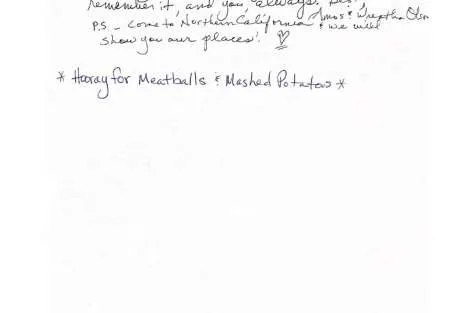 remember it, and you, always.
Amos &
P.S. - Come to Northern California & we will
show you our places! ♡
* Hooray for Meatballs & Mashed Potatoes *